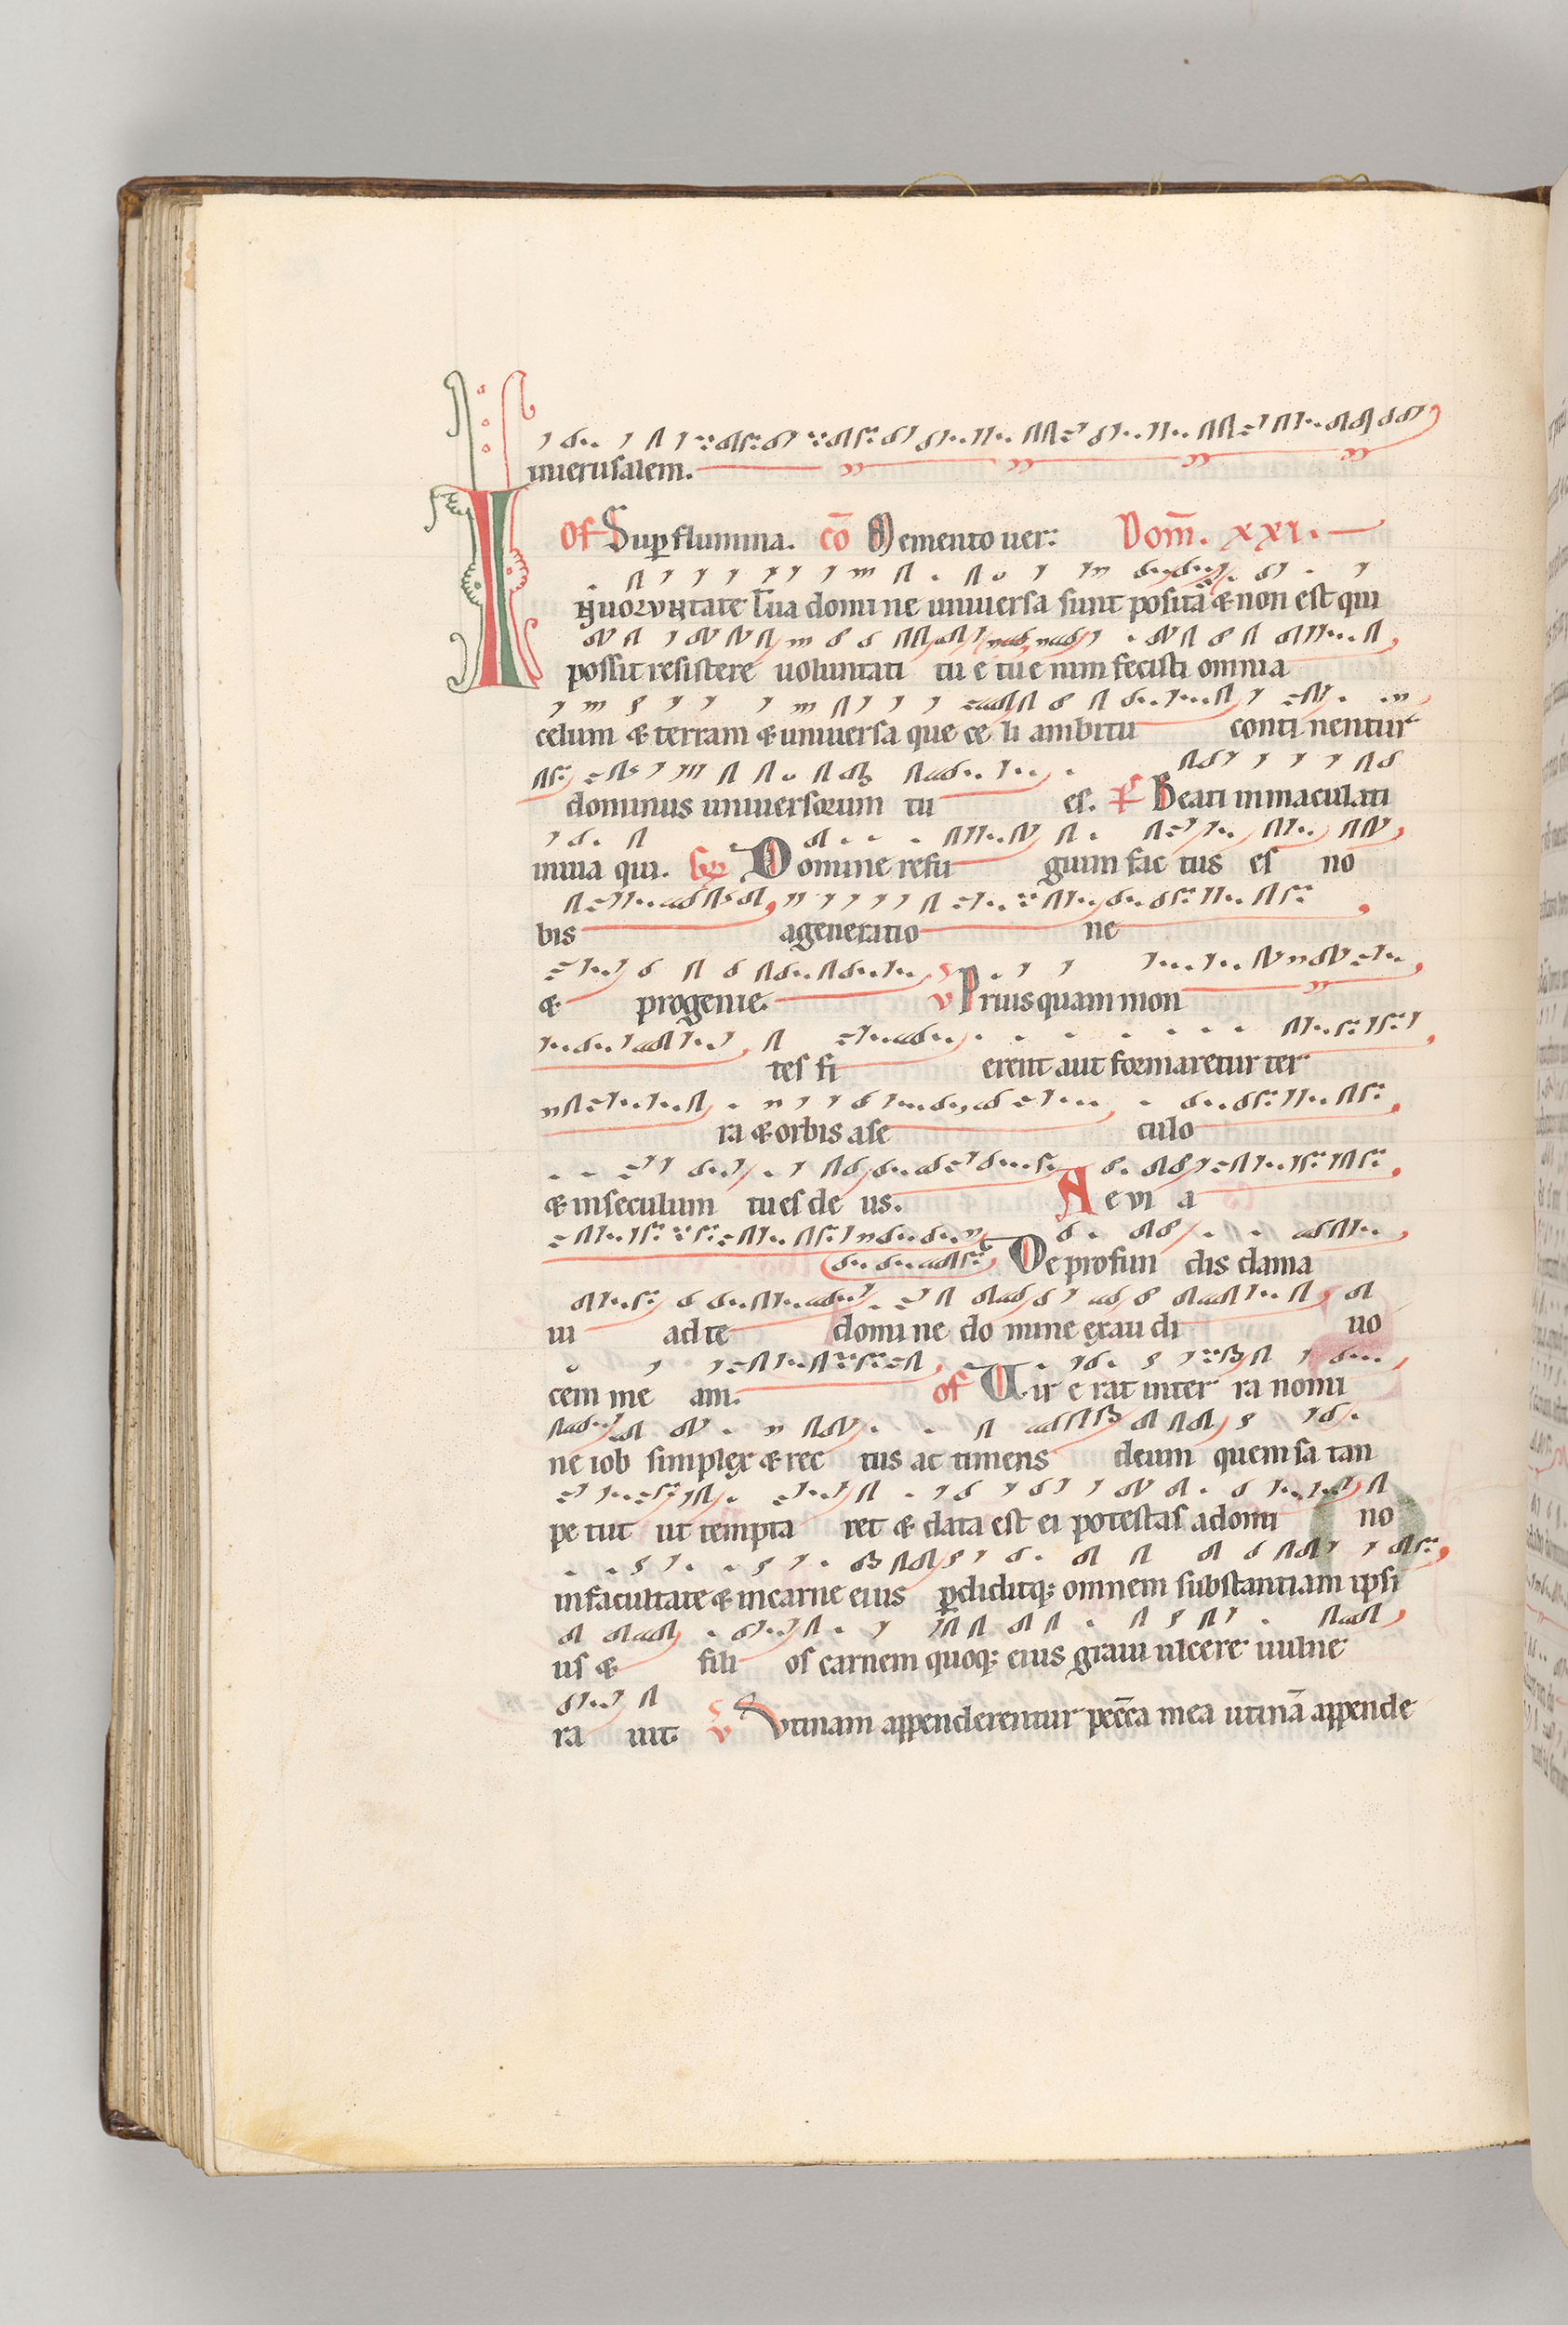 inierusalem.
Of Sup flumina. cō Memento uer: Dom̄. xxi.
IN uoluntate tua domi ne uniuersa sunt posita & non est qui
possit resistere uoluntati tu e tu e nim fecisti omnia
celum & terram & uniuersa que ce li ambitu conti nentur
dominus uniuersorum tu es. Ps Beati inmaculati
inuia qui. Domine refu gium fac tus es no
bis ageneratio ne
& progenie. V Priusquam mon
tes fi erent aut formaretur ter
ra & orbis ase culo
& inseculum tu es de us. A e vi a
De profun dis clama
ui ad te domi ne do mine exau di uo
cem me am. Of Vir e rat inter ra nomi
ne iob simplex & rec tus ac timens deum quem sa tan
pe tiit ut tempta ret & data est ei potestas adomi no
infacultate & incarne eius pdiditq; omnem substantiam ipsi
us & fili os carnem quoq; eius graui ulcere uulne
ra uit. V Vtinam appenderentur pecc̄a mea utinā appende